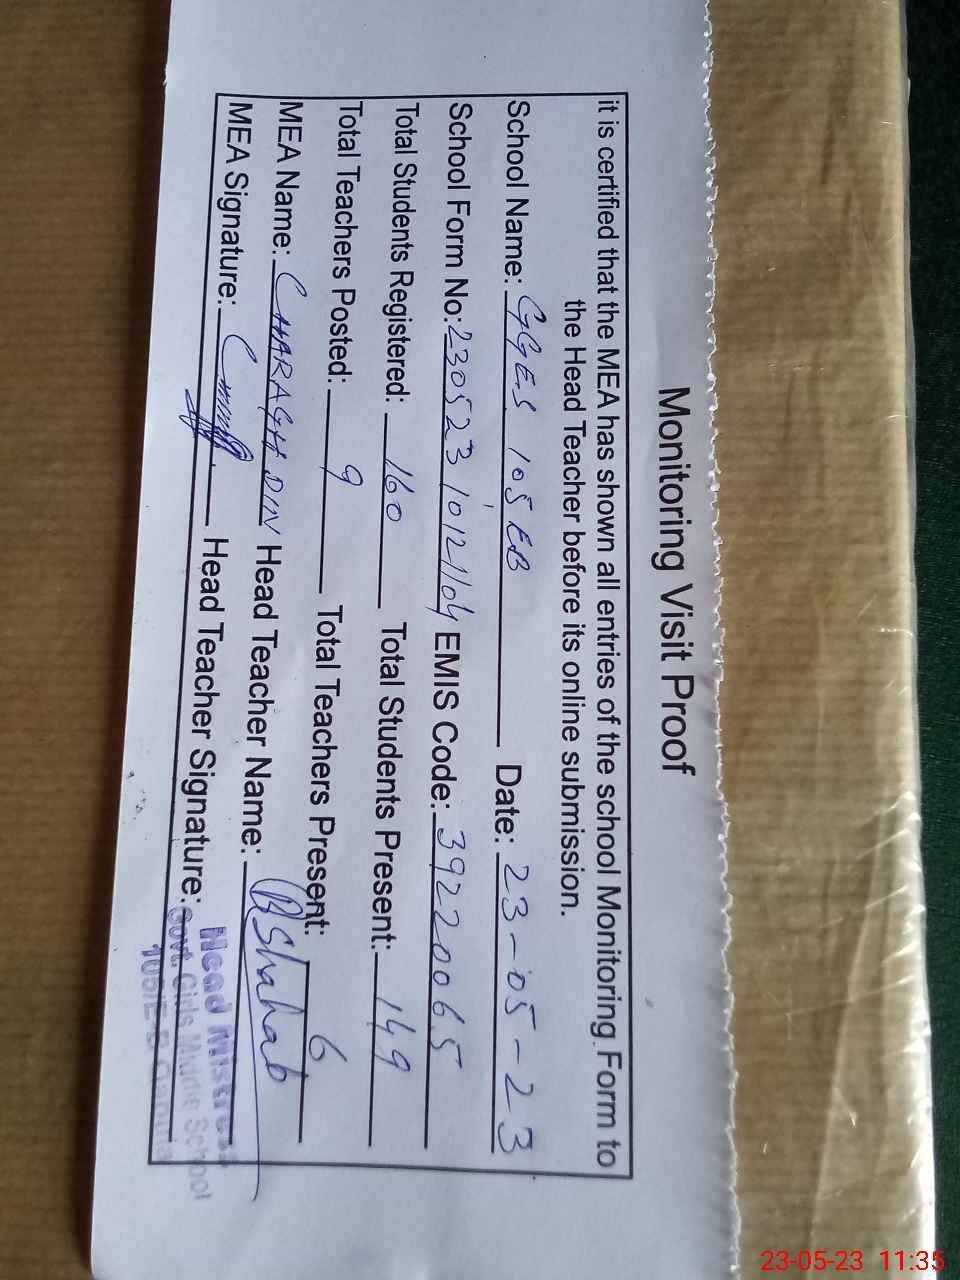 Monitoring Visit Proof
it is certified that the MEA has shown all entries of the school Monitoring Form to
the Head Teacher before its online submission.
School Name: GGES 105 EB Date: 23-05-23
School Form No: 230523 10121104 EMIS Code: 39220065
Total Students Registered: 160 Total Students Present: 149
Total Teachers Posted: 9 Total Teachers Present: 6
MEA Name: CHARAGH DIN Head Teacher Name: B Shahab
MEA Signature: Head Teacher Signature:
Head Mistress
Govt. Girls Middle School
105/E.B
23-05-23 11:35